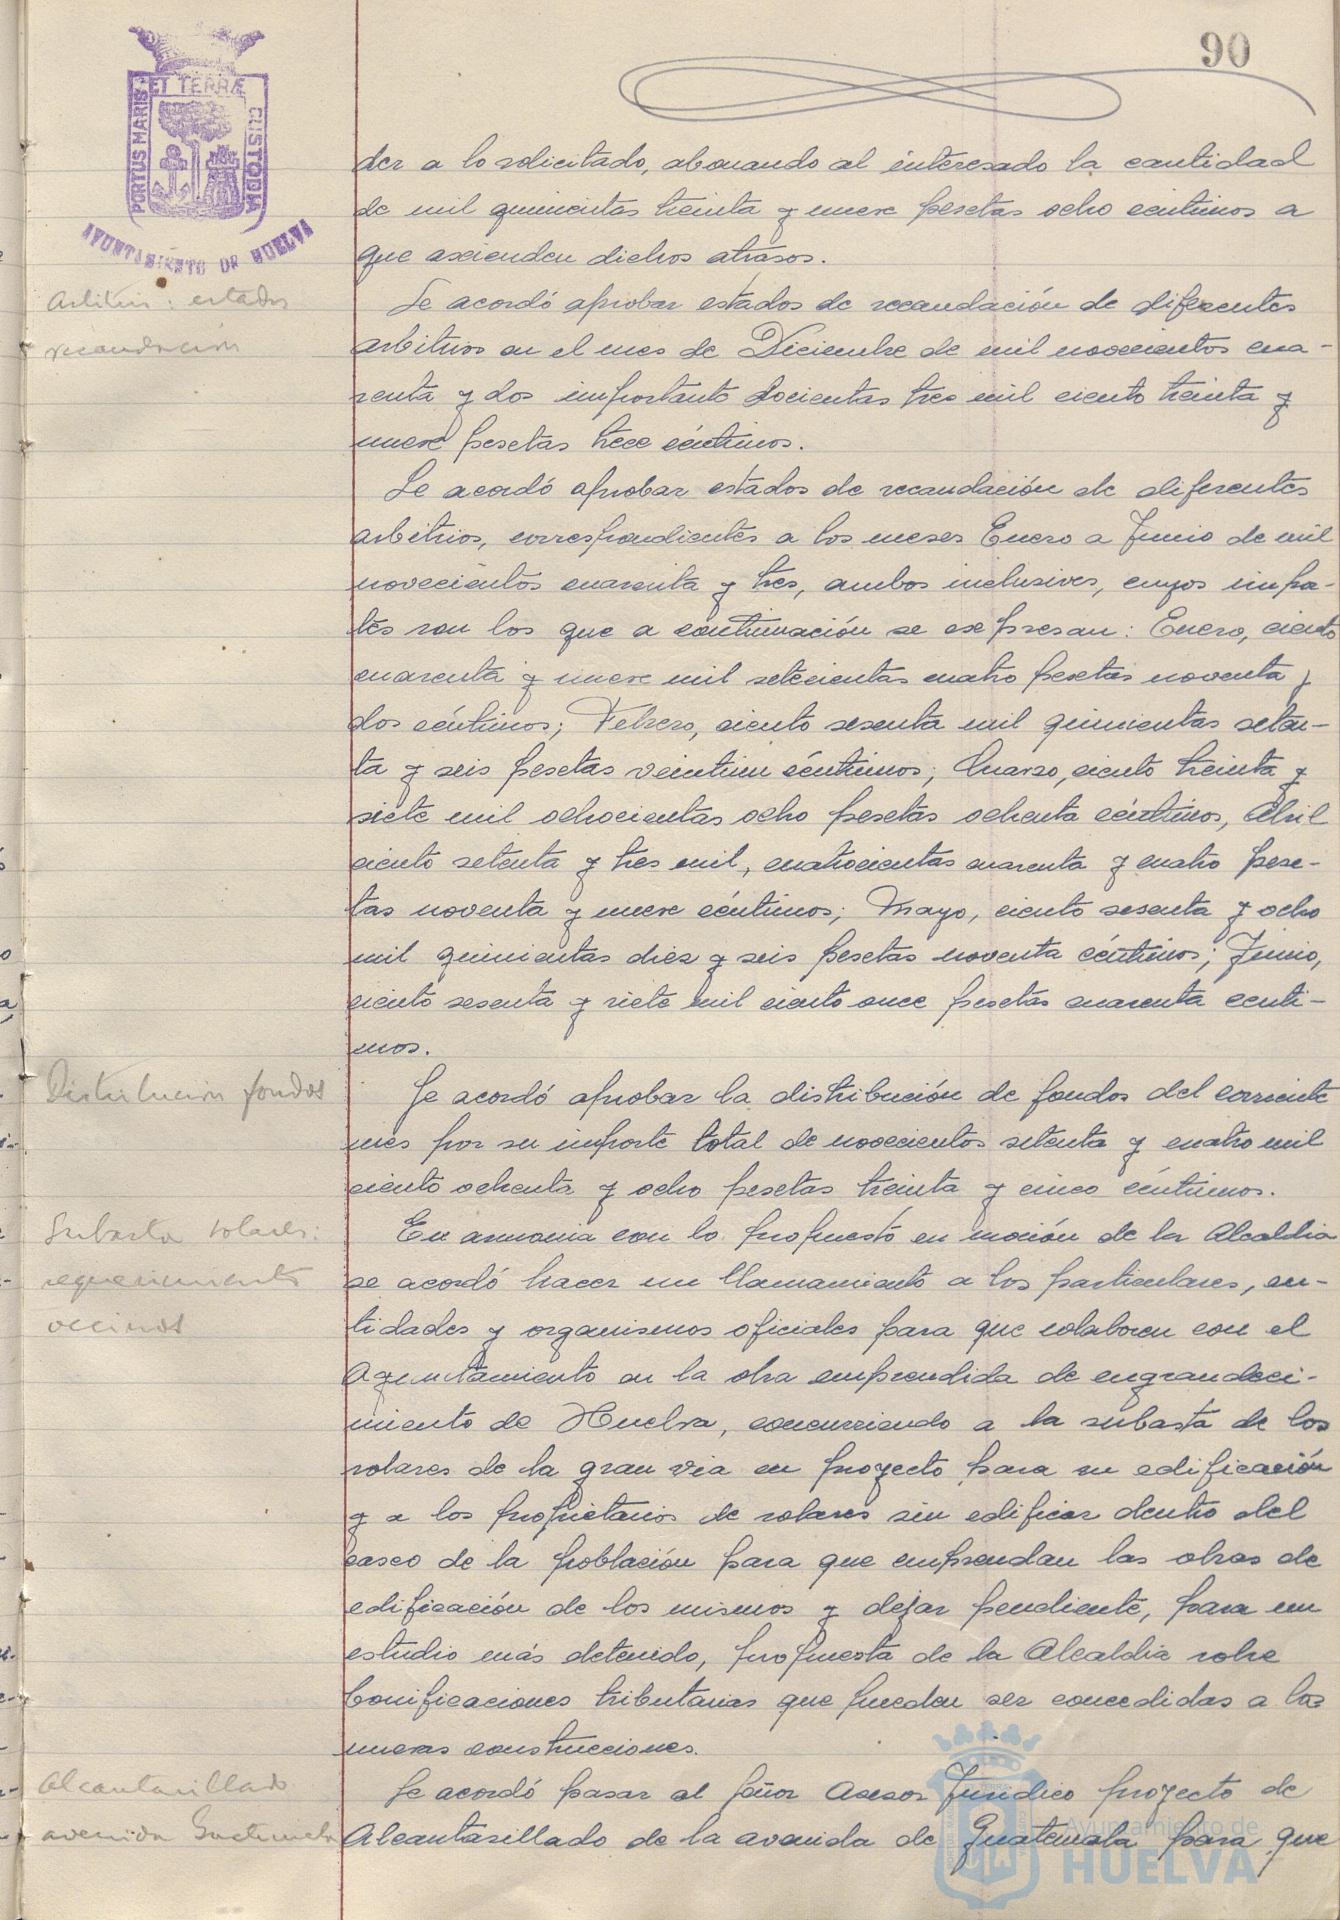 90
PORTUS MARIS ET TERRÆ CUSTODIA
AYUNTAMIENTO DE HUELVA
der a lo solicitado, abonando al interesado la cantidad
de mil quinientas treinta y nueve pesetas ocho centimos a
que ascienden dichos atrasos.
Arbitrios: estados
recaudación
Se acordó aprobar estados de recaudación de diferentes
arbitrios en el mes de Diciembre de mil novecientos cua-
renta y dos importante docientas tres mil ciento treinta y
nueve pesetas trece céntimos.
Se acordó aprobar estados de recaudación de diferentes
arbitrios, correspondientes a los meses Enero a Junio de mil
novecientos cuarenta y tres, ambos inclusives, cuyos impor-
tes son los que a continuación se expresan: Enero, ciento
cuarenta y nueve mil setecientas cuatro pesetas noventa y
dos céntimos; Febrero, ciento sesenta mil quinientas seten-
ta y seis pesetas veintiun céntimos; Marzo, ciento treinta y
siete mil ochocientas ocho pesetas ochenta céntimos, Abril
ciento setenta y tres mil, cuatrocientas cuarenta y cuatro pese-
tas noventa y nueve céntimos; Mayo, ciento sesenta y ocho
mil quinientas diez y seis pesetas noventa céntimos; Junio,
ciento sesenta y siete mil ciento once pesetas cuarenta centi-
mos.
Distribución fondos
Se acordó aprobar la distribución de fondos del corriente
mes por su importe total de novecientos setenta y cuatro mil
ciento ochenta y ocho pesetas treinta y cinco céntimos.
Subasta solares:
requerimiento
vecinos
En armonia con lo propuesto en moción de la Alcaldia
se acordó hacer un llamamiento a los particulares, en-
tidades y organismos oficiales para que colaboren con el
Ayuntamiento en la obra emprendida de engrandeci-
miento de Huelva, concurriendo a la subasta de los
solares de la gran via en proyecto para su edificación
y a los propietarios de solares sin edificar dentro del
casco de la población para que emprendan las obras de
edificación de los mismos y dejar pendiente, para un
estudio más detenido, propuesta de la Alcaldia sobre
bonificaciones tributarias que pueden ser concedidas a las
nuevas construcciones.
Alcantarillado
avenida Guatemala
Se acordó pasar al Señor Asesor Juridico proyecto de
Alcantarillado de la avenida de Guatemala para que
Ayuntamiento de
HUELVA